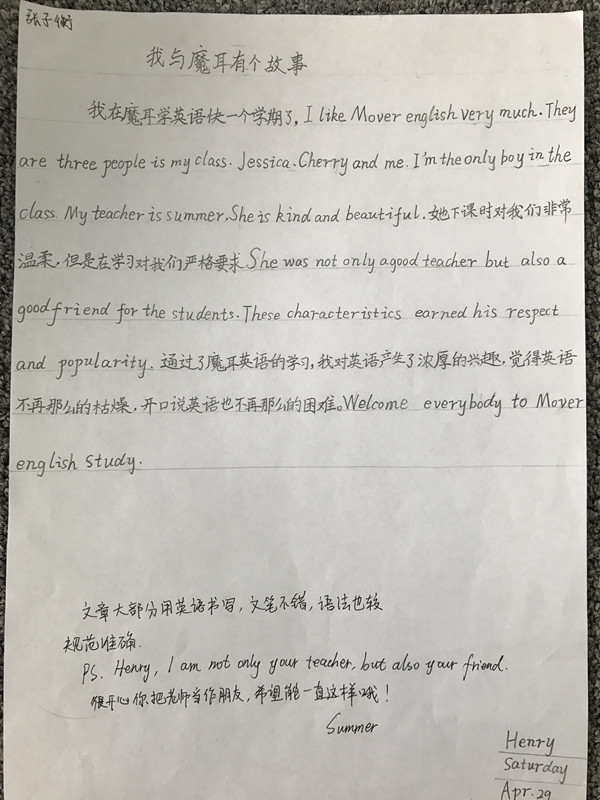 张子衡
我与魔耳有个故事
我在魔耳学英语快一个学期了, I like Mover english very much. They
are three people is my class. Jessica. Cherry and me. I'm the only boy in the
class. My teacher is summer. She is kind and beautiful. 她下课时对我们非常
温柔, 但是在学习对我们严格要求. She was not only a good teacher but also a
good friend for the students. These characteristics earned his respect
and popularity. 通过了魔耳英语的学习, 我对英语产生了浓厚的兴趣, 觉得英语
不再那么的枯燥, 开口说英语也不再那么的困难。Welcome everybody to Mover
english study.
文章大部分用英语书写, 文笔不错, 语法也较
规范准确.
PS. Henry, I am not only your teacher, but also your friend.
很开心你把老师当作朋友, 希望能一直这样哦!
Summer
Henry
Saturday
Apr. 29